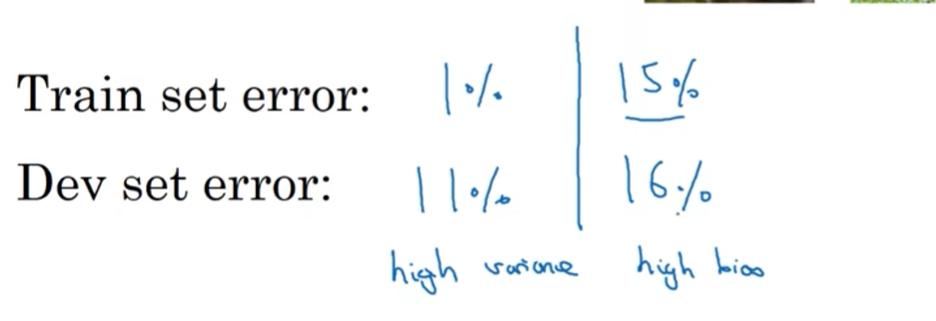 Train set error: 1% 15%
Dev set error: 11% 16%
high variance high bias